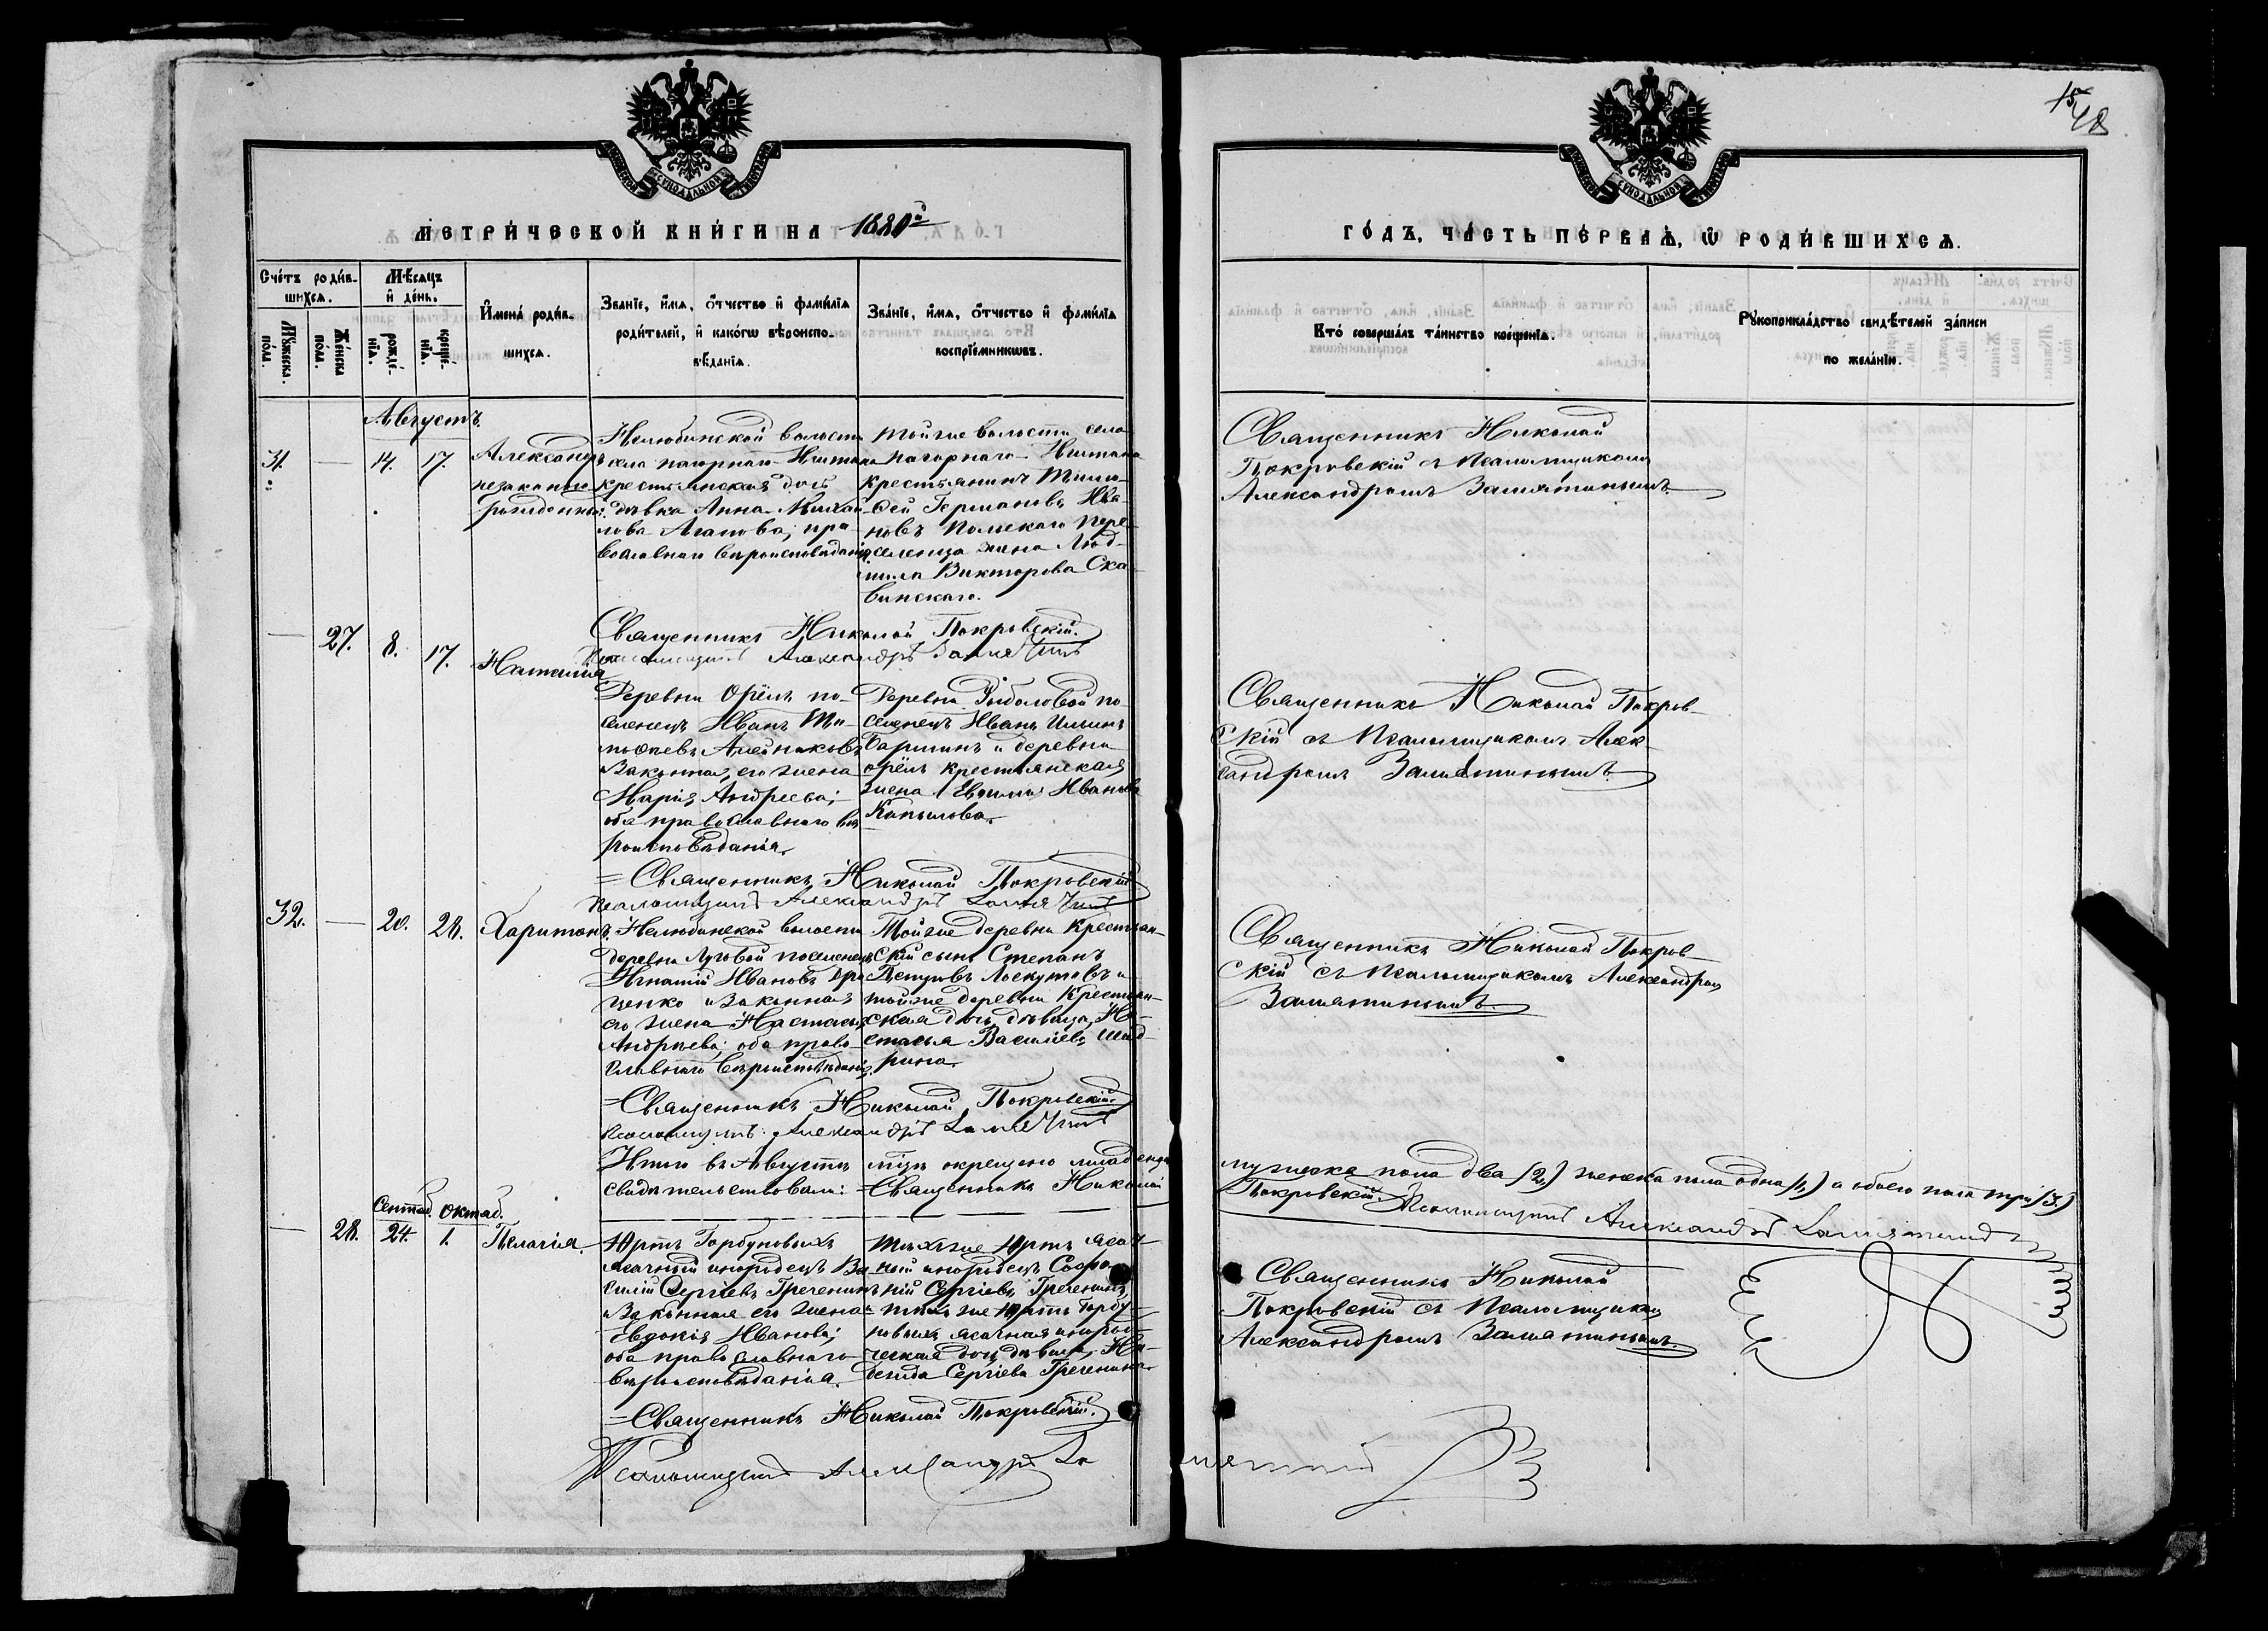 15
48
МЕТРИ́ЧЕСКОЙ КНИ́ГИ НА 1880й
ГО́ДЪ, ЧА́СТЬ ПЕ́РВАѦ, Ѡ РОДИ́ВШИХСѦ.
Сче́тъ роди́в-
шихсѧ.
Мꙋ́жеска
по́ла.
Же́нска
по́ла.
Мѣ́сѧцъ
и҆ де́нь.
рожде́-
нїѧ.
креще́-
нїѧ.
И҆мена̀ роди́в-
шихсѧ.
Зва́нїе, и҆́мѧ, ѻ҆́тчество и҆ фами́лїѧ
роди́телей, и҆ како́гѡ вѣроиспо-
вѣ́данїѧ.
Зва́нїе, и҆́мѧ, ѻ҆́тчество и҆ фами́лїѧ
воспрїе́мникѡвъ.
Кто̀ соверша́лъ та́инство креще́нїѧ.
Рꙋкоприкла́дство свидѣ́телей за́писи
по жела́нїю.
Августъ.
31. — 14. 17.
Александръ
незаконно
рожденный.
Нелюбинской волости
села нагорнаго Иштана
крестьянская дочь
дѣвка Анна Михаи
лова Агапова; пра
вославнаго вѣроисповѣданія
Тойже волости села
Нагорнаго Иштана
крестьянинъ Тимо-
фей Германовъ Ива-
новъ Польскаго пере-
селенца жена Люд-
мила Викторова Ска
винскаго.
Священникъ Николай
Покровскій съ Псаломщикомъ
Александромъ Замятинымъ.
Священникъ Николай Покровскій.
Псаломщикъ Александръ Замятинъ
— 27. 8. 17. Наталія
Деревни Орёлъ по-
селенецъ Иванъ Ти-
моѳеевъ Алейниковъ
и законная его жена
Марія Андреева;
оба православнаго вѣ
роисповѣданія.
Деревни Рыболовой по
селенецъ Иванъ Ильинъ
и деревни
орёлъ крестьянская
жена Иванова
Копылова.
Священникъ Николай Покров-
скій съ Псаломщикомъ Алек-
сандромъ Замятинымъ.
Священникъ Николай Покровскій
Псаломщикъ Александръ Замятинъ
32. — 20. 28. Харитонъ.
Нелюбинской волости
деревни Луговой поселенецъ
Игнатій Ивановъ
ценко и законная
его жена Настасья
Андреева; оба право
славнаго вѣроисповѣданія.
Тойже деревни Крестьян-
скій сынъ Степанъ
Петровъ Лоскутовъ и
тойже деревни Крестьян-
ская дочь дѣвица, На-
стасья Васильева Шад-
рина.
Священникъ Николай Покров-
скій съ Псаломщикомъ Александромъ
Замятинымъ.
Священникъ Николай Покровскій.
Псаломщикъ Александръ Замятинъ
Итого въ Августѣ мѣсяцѣ окрещено младенцевъ мужеска пола два (2) женска пола одна (1) а обоего пола три (3)
свидѣтельствовали: Священникъ Николай Покровскій. Псаломщикъ Александръ Замятинъ
Сентяб. Октяб.
— 28. 24. 1. Пелагія.
Юртъ Горбуновыхъ
ясачный инородецъ Ва
силій Сергіевъ Греченинъ
и законная его жена
Евдокія Иванова;
оба православнаго
вѣроисповѣданія.
Тѣхъ же Юртъ ясач-
ный инородецъ Софро-
ній Сергіевъ Греченинъ
и тѣхъ же юртъ Горбу-
новыхъ ясачная инород-
ческая дочь дѣвица,
Сергіева Греченина.
Священникъ Николай
Покровскій съ Псаломщикомъ
Александромъ Замятинымъ.
Священникъ Николай Покровскій.
Псаломщикъ Александръ Замятинъ